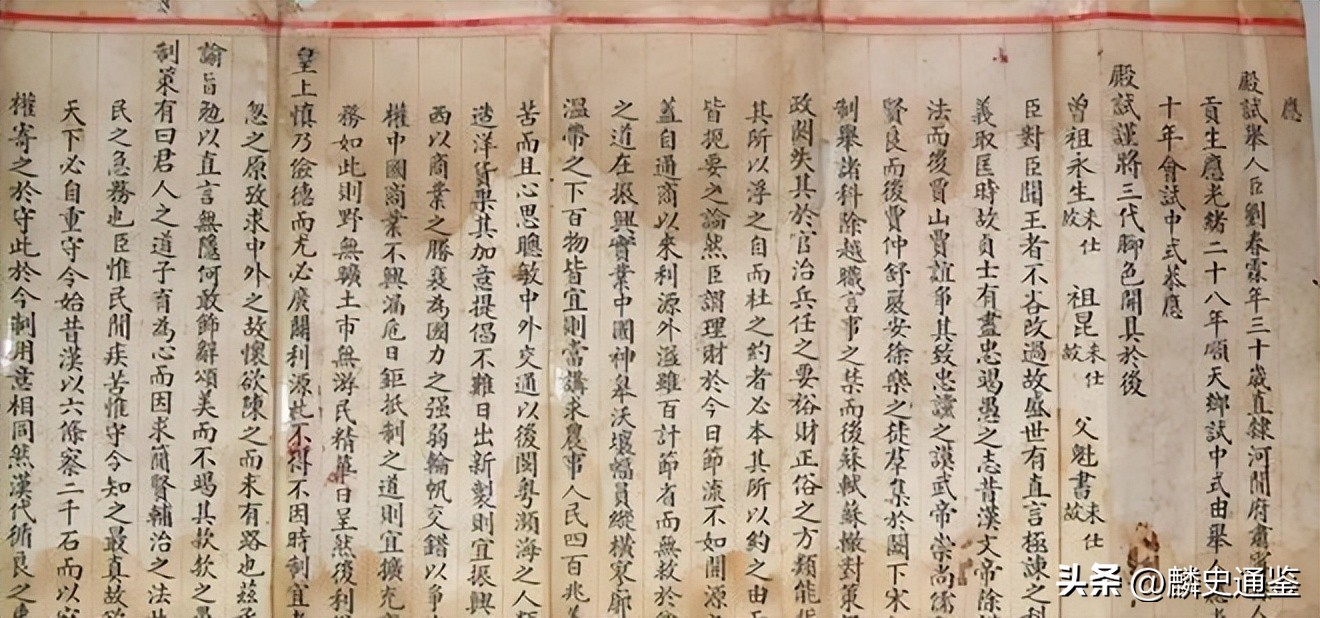 應
殿試舉人臣劉春霖年三十歲直隸河間府肅寧縣人
貢生應光緒二十八年順天鄉試中式由舉人應光
十年會試中式恭應
殿試謹將三代腳色開具於後
曾祖永生未仕故 祖昆未仕故 父魁書未仕故
臣對臣聞王者不吝改過故盛世有直言極諫之科
義取匡時故貞士有盡忠竭愚之志昔漢文帝除
法而後賈山賈誼爭其致忠讜之謨武帝崇尚儒
賢良而後賈仲舒嚴安徐樂之徒羣集於闕下宋
制舉諸科除越職言事之禁而後蘇軾蘇轍對策
政闕失其於官治兵任之要裕財正俗之方類能指
其所以浮之自而杜之約者必本其所以約之由
皆扼要之論然臣謂理財於今日節流不如開源之
蓋自通商以來利源外溢雖百計節省而無救於
之道在振興實業中國神皋沃壤幅員縱橫寥廓
溫帶之下百物皆宜則當講求農事人民四百兆
苦而且心思聰敏中外交通以後閩粵瀕海之人類
造洋貨果其加意提倡不難日出新製則宜振興
西以商業之勝衰為國力之强弱輪帆交錯以爭
權中國商業不興漏卮日鉅抵制之道則宜擴充
務如此則野無曠土市無游民精華日呈然後利
皇上慎乃儉德而尤必廣闢利源此不得不因時制宜
忽之原攷求中外之故懷欲陳之而未有路也茲
諭旨勉以直言無隱何敢飾辭頌美而不竭其款款之愚
制策有曰君人之道子育為心而因求簡賢輔治之法
民之急務也臣惟民間疾苦惟守令知之最真故
天下必自重守令始昔漢以六條察二千石而以
權寄之於守此於今制用意相同然漢代循良之
头条 @麟史通鉴